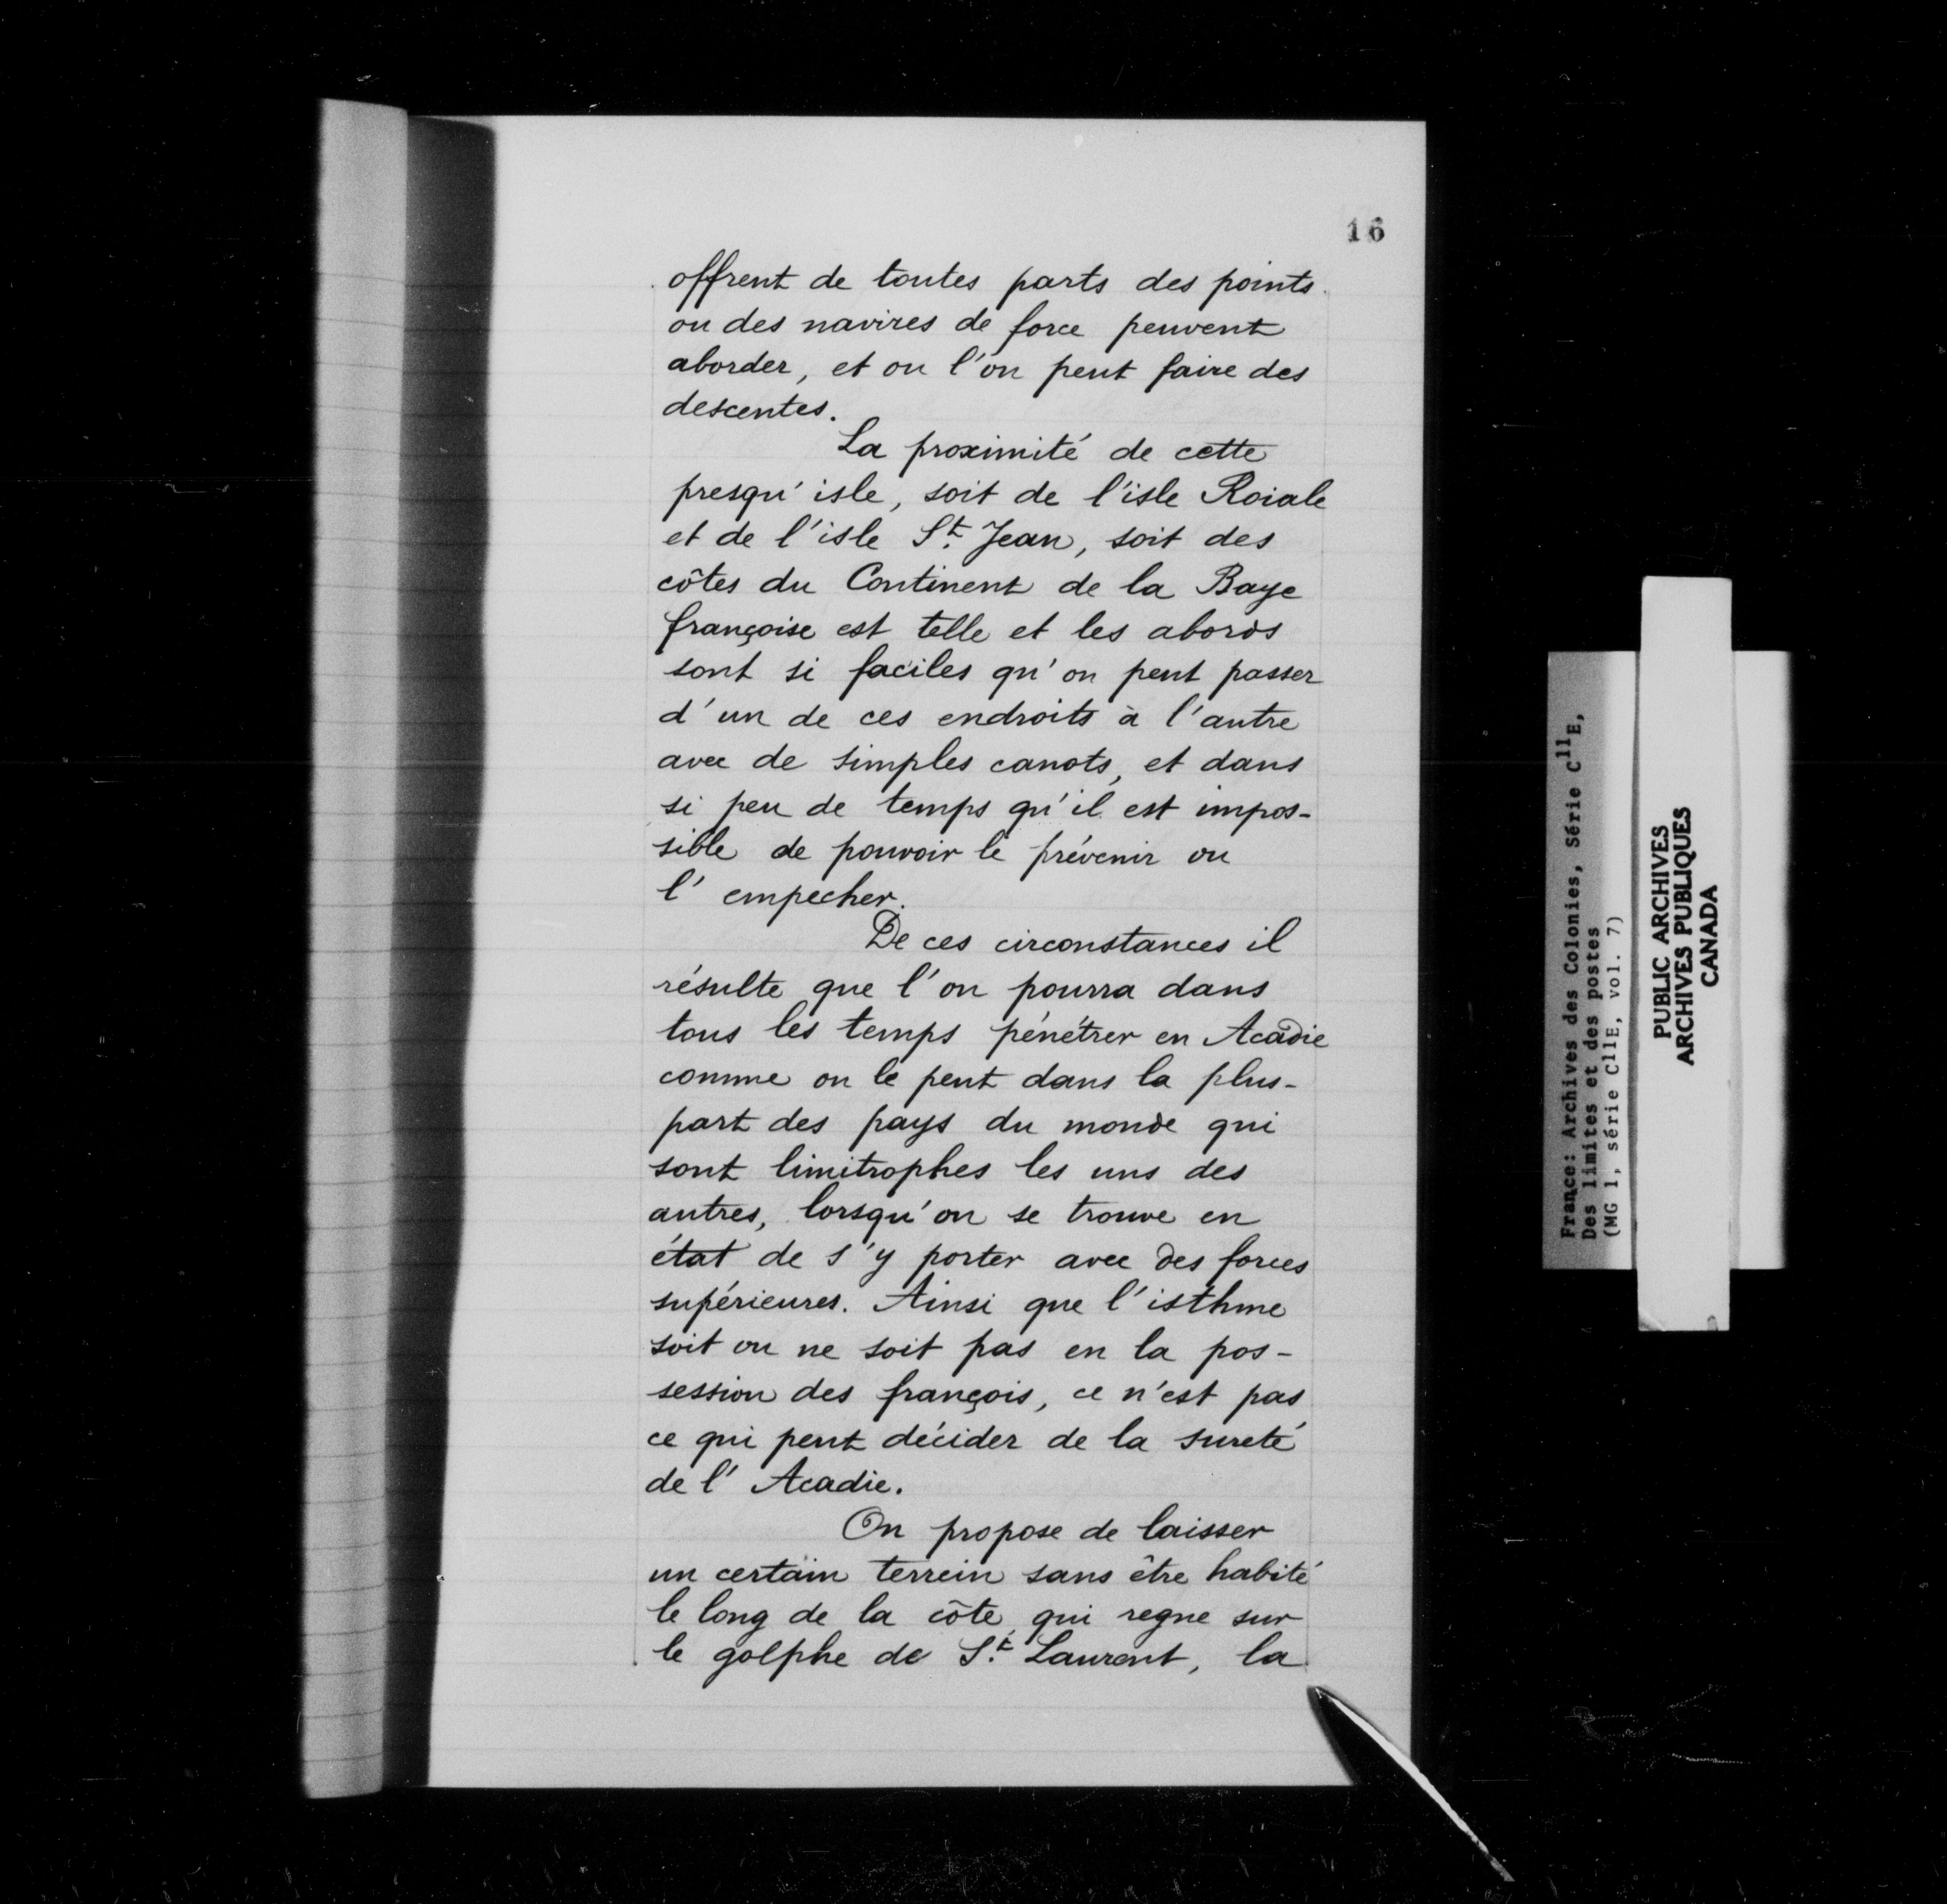 16
offrent de toutes parts des points
ou des navires de force peuvent
aborder, et ou l'on peut faire des
descentes.
La proximité de cette
presqu'isle, soit de l'isle Roiale
et de l'isle St. Jean, soit des
côtes du Continent de la Baye
françoise est telle et les abords
sont si faciles qu'on peut passer
d'un de ces endroits à l'autre
avec de simples canots, et dans
si peu de temps qu'il est impos-
sible de pouvoir le prévenir ou
l'empecher.
De ces circonstances il
résulte que l'on pourra dans
tous les temps pénétrer en Acadie
comme on le peut dans la plus-
part des pays du monde qui
sont limitrophes les uns des
autres, lorsqu'on se trouve en
état de s'y porter avec des forces
supérieures. Ainsi que l'isthme
soit ou ne soit pas en la pos-
session des françois, ce n'est pas
ce qui peut décider de la sureté
de l'Acadie.
On propose de laisser
un certain terrein sans être habité
le long de la côte qui regne sur
le golphe de St. Laurent, la
France: Archives des Colonies, Série C11E,
Des limites et des postes
(MG 1, série C11E, vol. 7)
PUBLIC ARCHIVES
ARCHIVES PUBLIQUES
CANADA